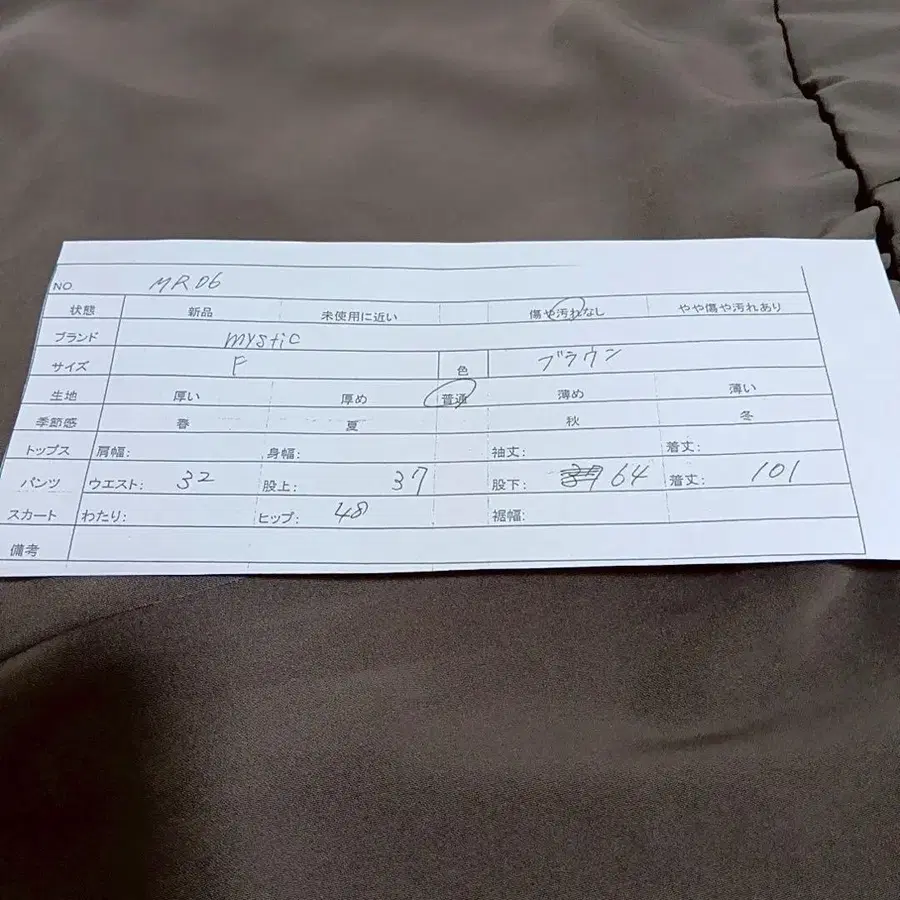 NO. MR06
状態 新品 未使用に近い 傷や汚れなし やや傷や汚れあり
ブランド mystic
サイズ F 色 ブラウン
生地 厚い 厚め 普通 薄め 薄い
季節感 春 夏 秋 冬
トップス 肩幅: 身幅: 袖丈: 着丈:
パンツ ウエスト: 32 股上: 37 股下: 64 着丈: 101
スカート わたり: ヒップ: 48 裾幅:
備考